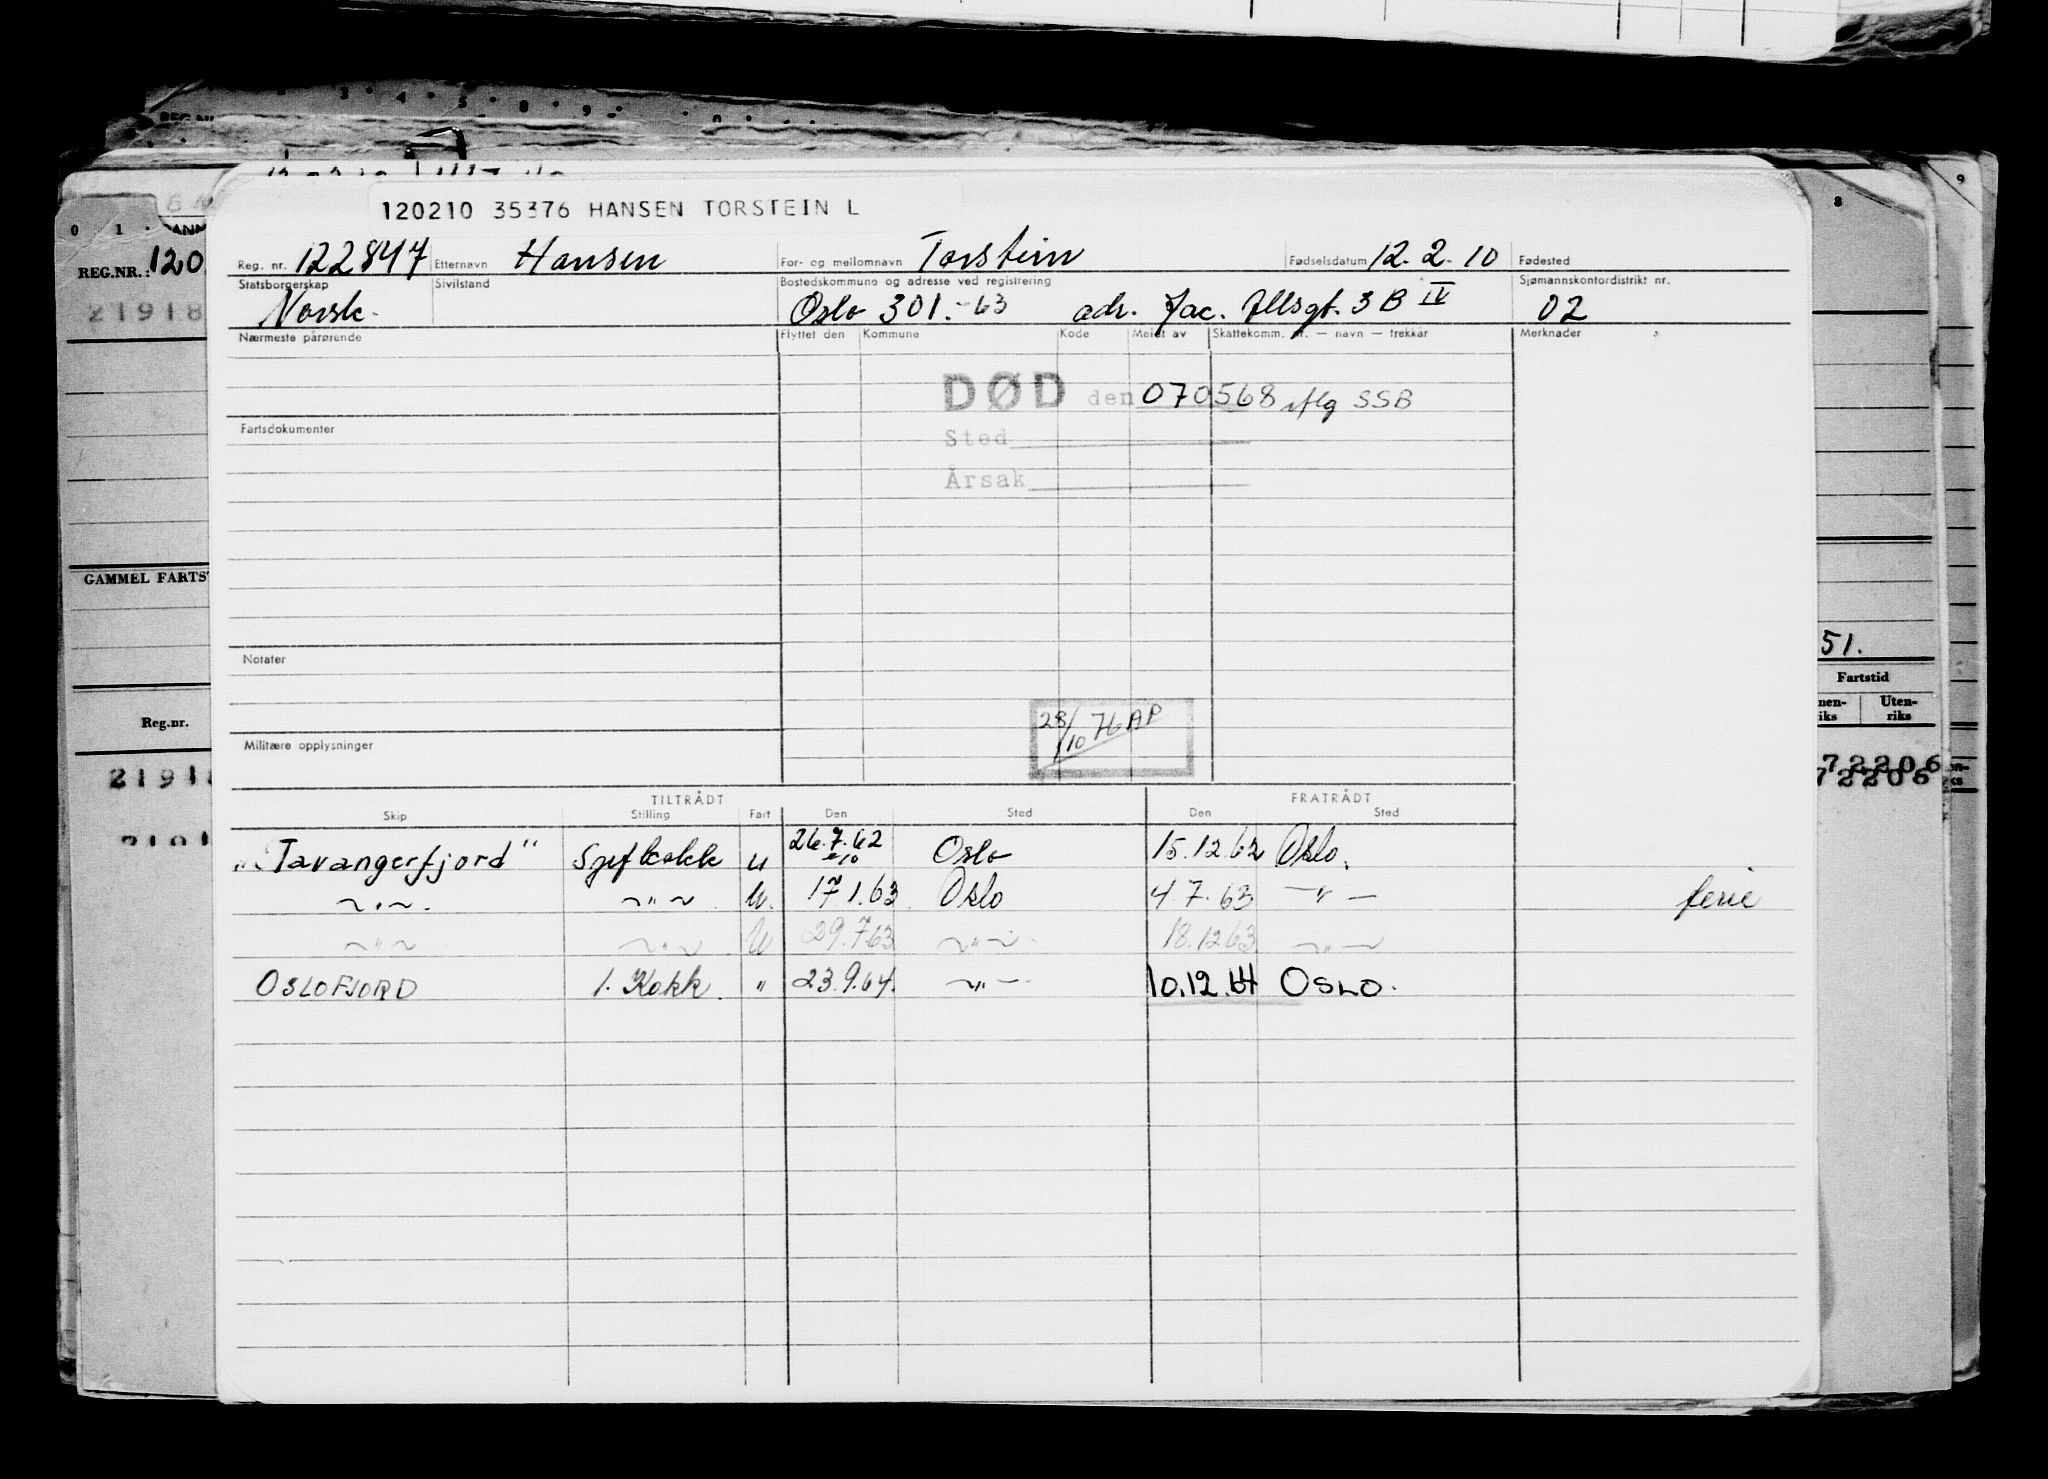 120210 35376 HANSEN TORSTEIN L
Reg. nr. 122847 Etternavn Hansen For- og mellomnavn Torstein Fødselsdatum 12.2.10 Fødested
Statsborgerskap Sivilstand Bostedskommune og adresse ved registrering Sjømannskontordistrikt nr.
Norsk. Oslo 301.-63 adr. Jac. Allsgt. 3 B IV 02
Nærmeste pårørende Flyttet den Kommune Kode Meldt av Skattekomm. nr. — navn — trekkår Merknader
DØD den 070568 iflg SSB
Sted
Årsak
Fartsdokumenter
Notater
28/10 76 AP
Militære opplysninger
TILTRÅDT FRATRÅDT
Skip Stilling Fart Den Sted Den Sted
"Tavangerfjord" Sjefkokk U 26.7.62 Oslo 15.12.62 Oslo.
~"~ ~"~ U. 17 1.63 Oslo 4.7.63 —"— ferie
~"~ ~"~ U 29.7.63 ~"~ 18.12.63 ~"~
OSLOFJORD 1. Kokk. " 23.9.64. ~"~ 10.12.64 OSLO.
0 1
REG.NR.: 120
21918
GAMMEL FARTS
Reg.nr.
2191
8
9
51.
Fartstid
Uten-
riks
72206
72206